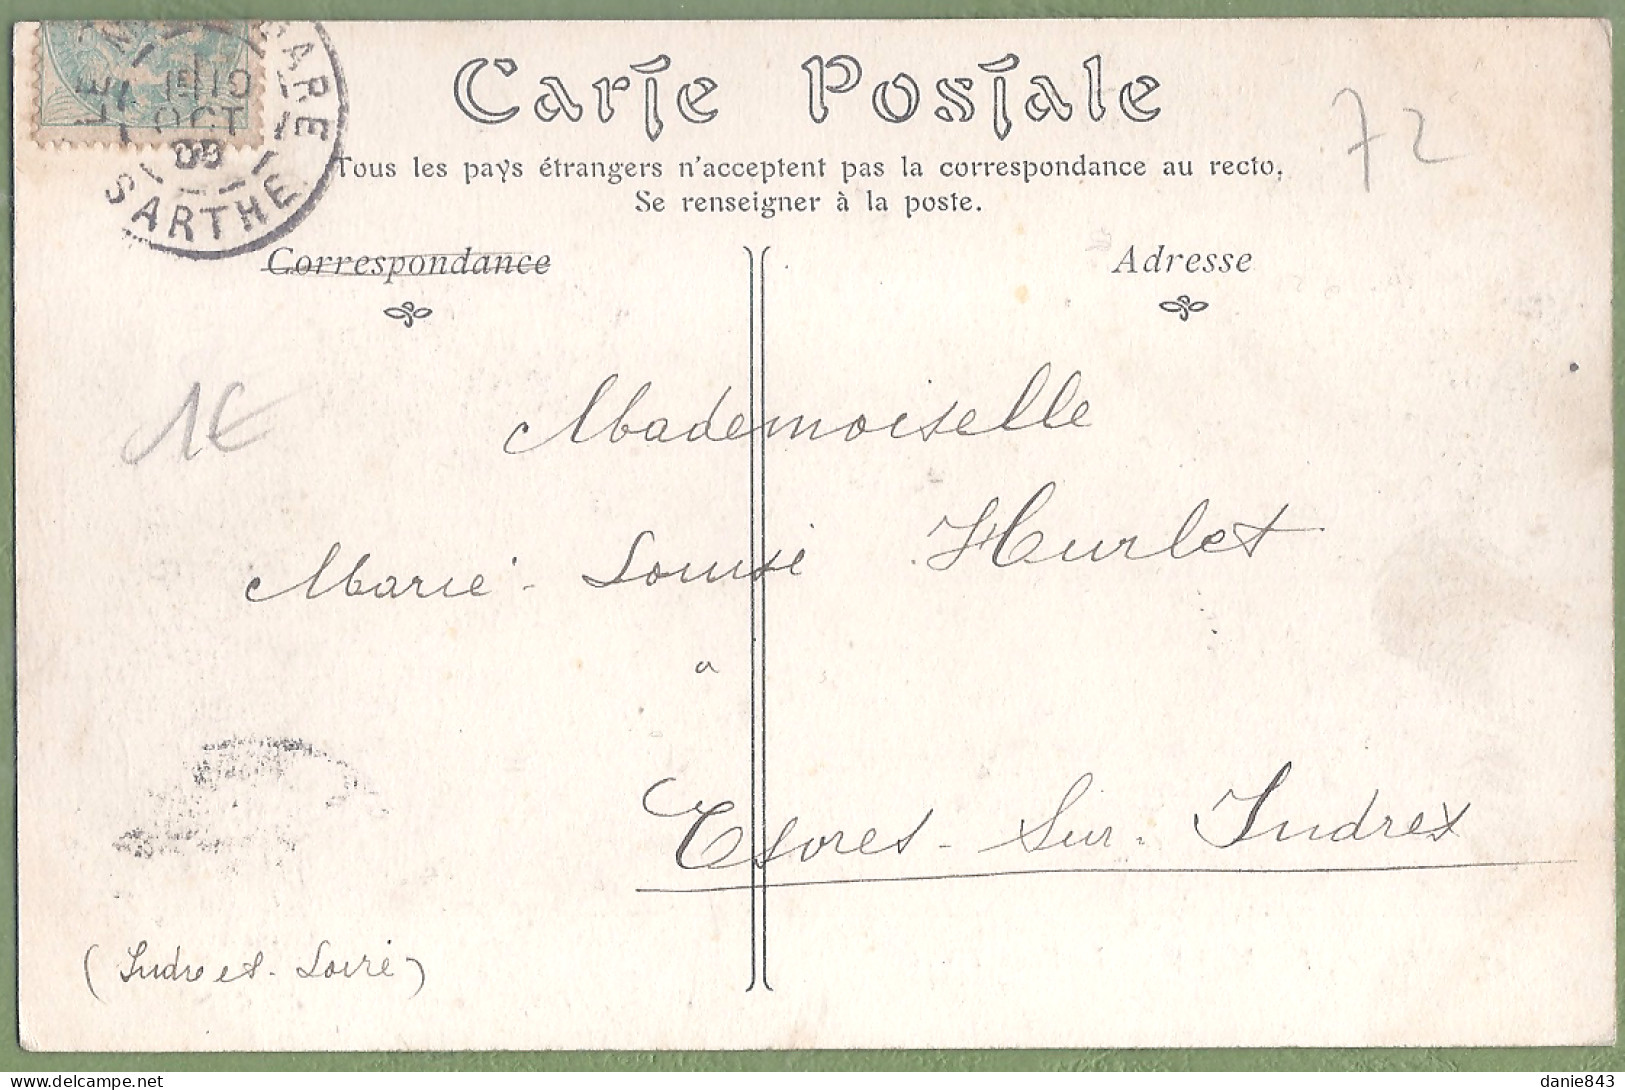 GARE
15 10
OCT
SARTHE
Carte Postale
72
Tous les pays étrangers n'acceptent pas la correspondance au recto.
Se renseigner à la poste.
Correspondance
Adresse
1€
Mademoiselle
Marie-Louise Hurlet
a
Esvres-Sur-Indres
(Indre et-Loire)
delcampe.net
danie843